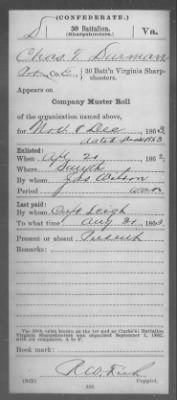 (CONFEDERATE.)
D 30 Battalion. Va.
(Sharpshooters.)
Chas. T. Durman
Co. E, 30 Batt'n Virginia Sharp-
shooters.
Appears on
Company Muster Roll
of the organization named above,
for Nov. & Dec 1863
dated 1863
Enlisted:
When 20 1862
Where
By whom Jas Wilson
Period war
Last paid:
By whom Capt Leigh
To what time Aug 31 1863
Present or absent Present
Remarks:
The 30th (also known as the 1st and as Clarke's) Battalion
Virginia Sharpshooters was organized September 1, 1862,
with six companies, A to F.
Book mark:
R. W.
Copyist.